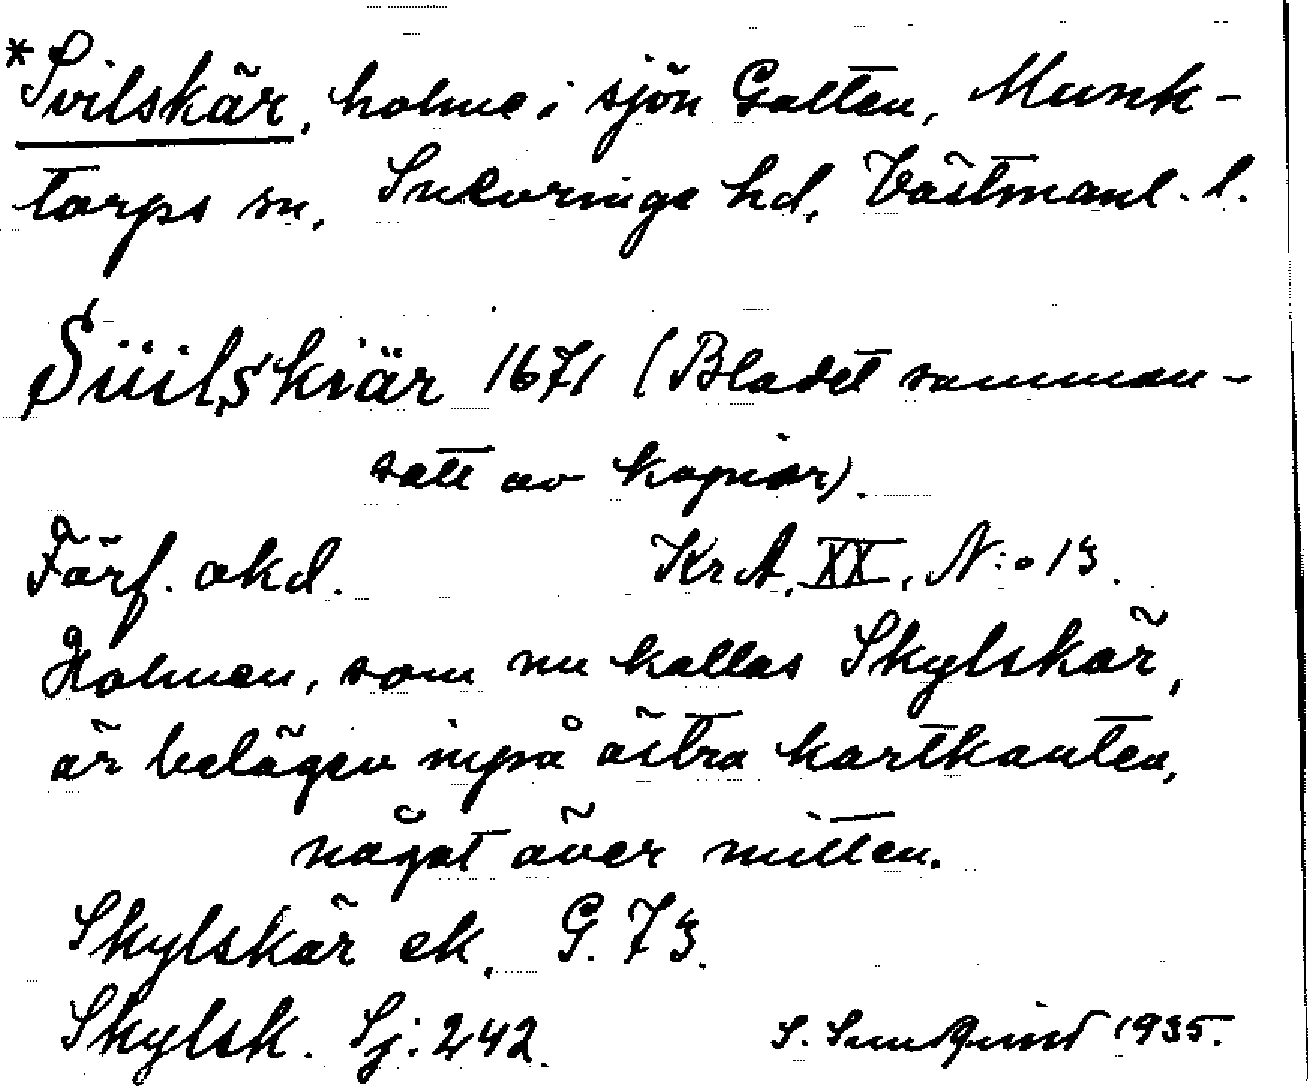 *Svilskär, holme i sjön Galten, Munk-
torps sn. Snevringe hd, Västmanl. l.
Süilskiär 1671 (Bladet samman-
satt av kopior).
Förf. okd. KrA, XX, N:o 13.
Holmen, som nu kallas Skylskär,
är belägen inpå östra kartkanten,
något över mitten.
Skylskär ek. G. 73.
Skylsk. Sj: 242.
S. Sundquist 1935.